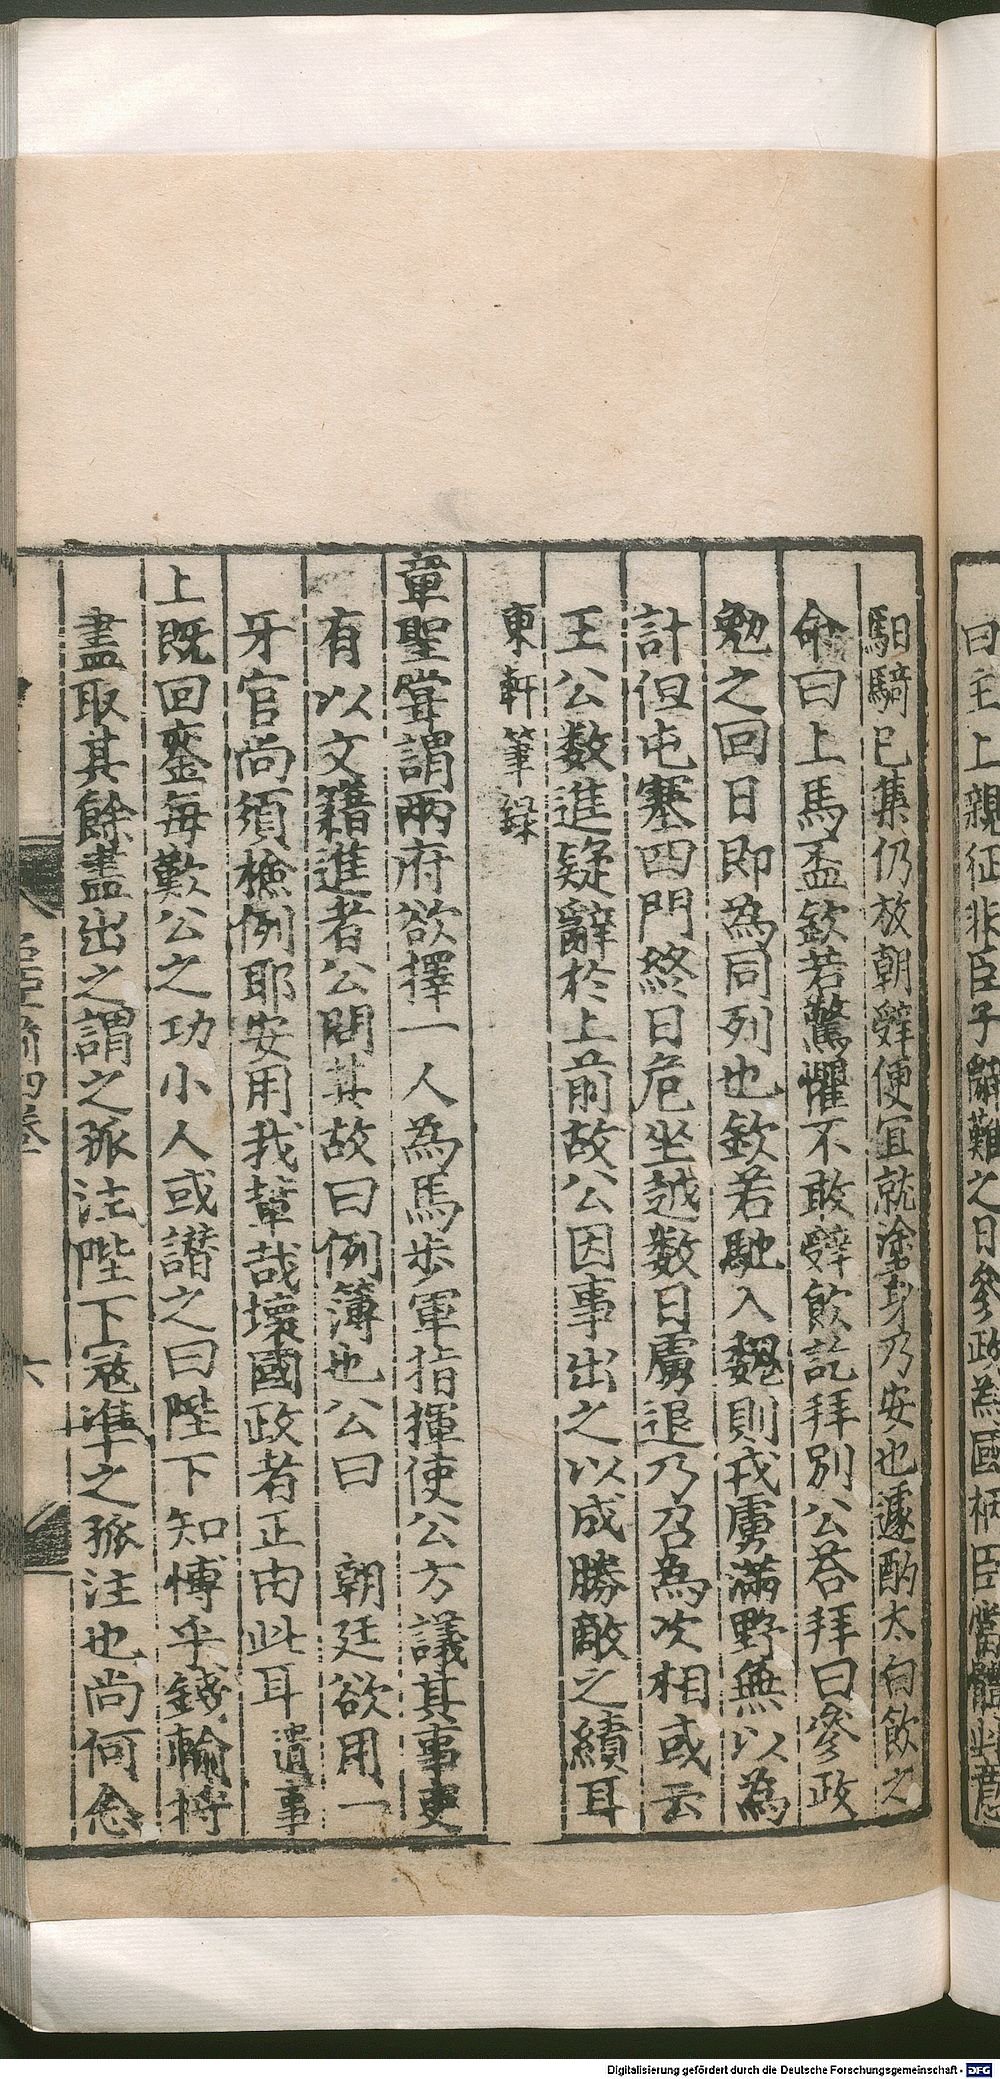 曰主上親征非臣子辭難之日參政為國柄臣當體此意
馹騎已集仍放朝辤便宜就塗身乃安也遽酌太白飲之
命曰上馬盃欽若驚懼不敢辤飲訖拜別公荅拜曰參政
勉之回日即為同列也欽若馳入魏則戎虜滿野無以為
計但屯塞四門終日危坐越数日虜退乃召為次相或云
王公数進疑辭於上前故公因事出之以成勝敵之績耳
東軒筆録
章聖甞謂兩府欲擇一人為馬步軍指揮使公方議其事吏
有以文籍進者公問其故曰例簿也公曰 朝廷欲用一
牙官尚須檢例耶安用我輩哉壞國政者正由此耳 遺事
上既回鑾每歎公之功小人或譖之曰陛下知博乎錢輸將
盡取其餘盡出之謂之孤注陛下寇準之孤注也尚何念
名臣前四卷
六
Digitalisierung gefördert durch die Deutsche Forschungsgemeinschaft - DFG